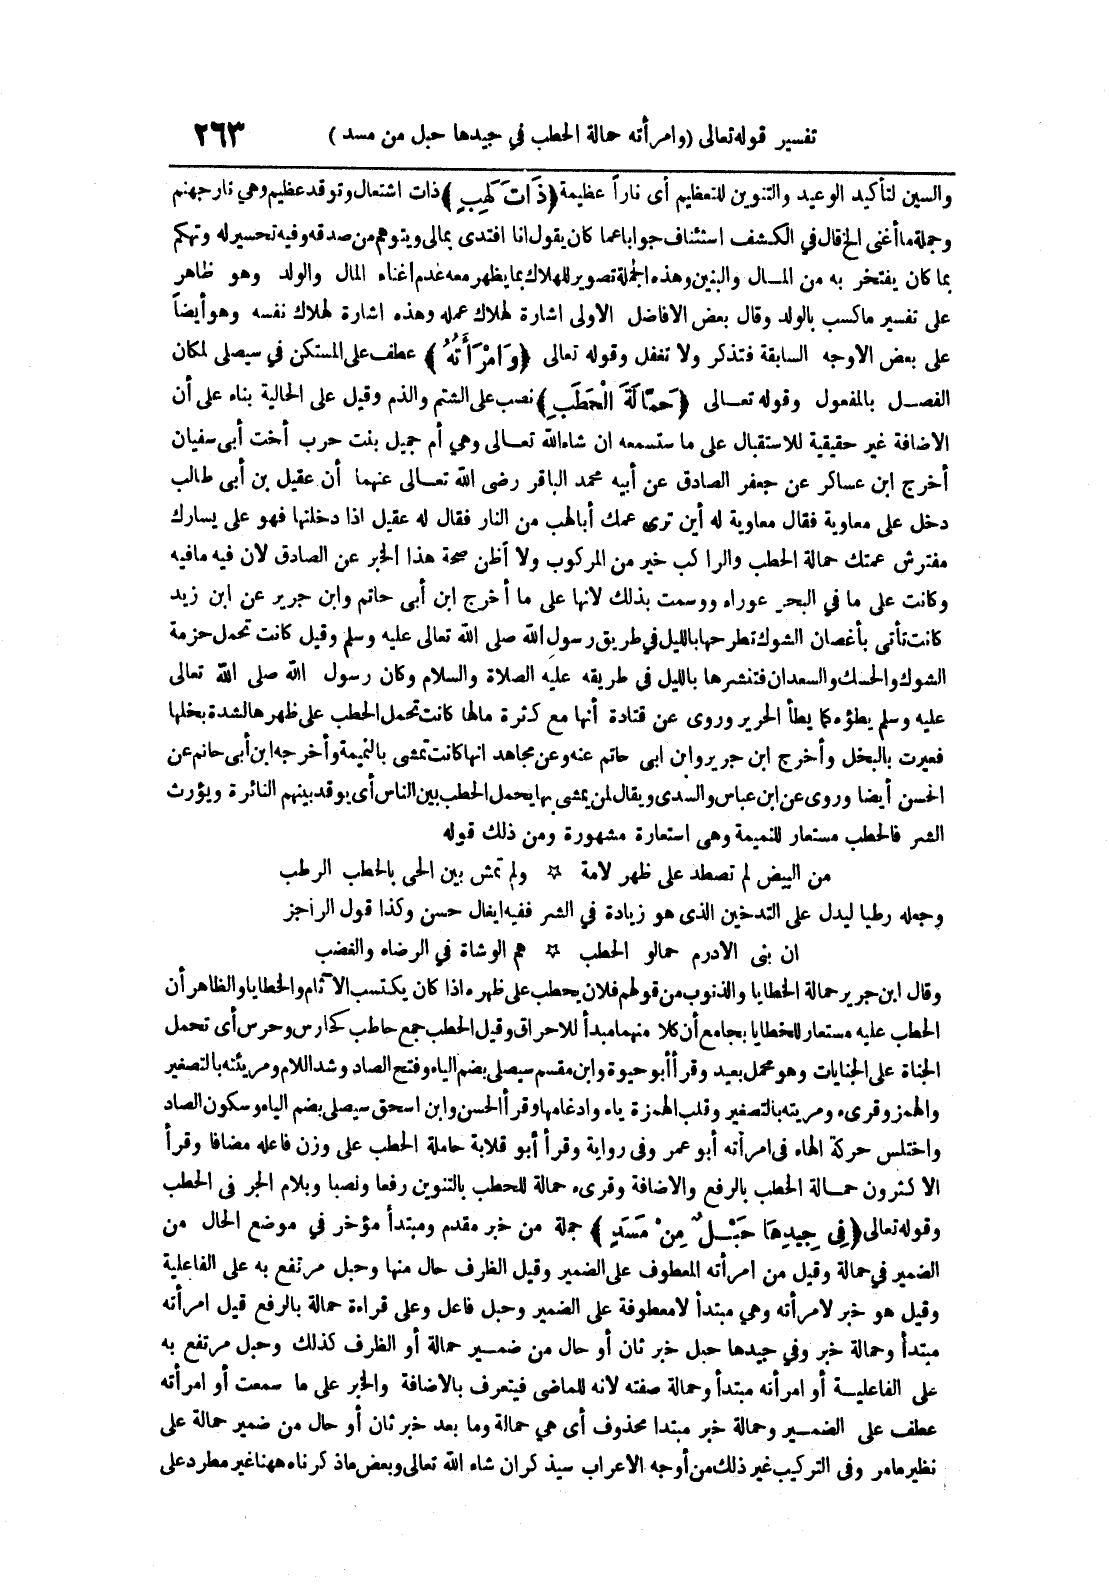 تفسير قوله تعالى (وامرأته حمالة الحطب في جيدها حبل من مسد) ٢٦٣
والسين لتأكيد الوعيد والتنوين للتعظيم أى ناراً عظيمة ﴿ذَاتَ لَهَبٍ﴾ ذات اشتعال وتوقد عظيم وهي نار جهنم
وجملة ما أغنى الخ قال في الكشف استئناف جوابا عما كان يقول انا افتدى بمالى ويتوهم من صدقه وفيه تحسير له وتهكم
بما كان يفتخر به من المال والبنين وهذه الجملة تصوير للهلاك بما يظهر معه عدم اغناء المال والولد وهو ظاهر
على تفسير ما كسب بالولد وقال بعض الافاضل الاولى اشارة لهلاك عمله وهذه اشارة لهلاك نفسه وهو أيضاً
على بعض الاوجه السابقة فتذكر ولا تغفل وقوله تعالى ﴿وَامْرَأَتُهُ﴾ عطف على المستكن في سيصلى لمكان
الفصل بالمفعول وقوله تعالى ﴿حَمَّالَةَ الْحَطَبِ﴾ نصب على الشتم والذم وقيل على الحالية بناء على أن
الاضافة غير حقيقية للاستقبال على ما ستسمعه ان شاء الله تعالى وهي أم جميل بنت حرب أخت أبى سفيان
أخرج ابن عساكر عن جعفر الصادق عن أبيه محمد الباقر رضى الله تعالى عنهما أن عقيل بن أبى طالب
دخل على معاوية فقال معاوية له أين ترى عمك أبا لهب من النار فقال له عقيل اذا دخلتها فهو على يسارك
مفترش عمتك حمالة الحطب والراكب خير من المركوب ولا أظن صحة هذا الخبر عن الصادق لان فيه مافيه
وكانت على ما في البحر عوراء ووسمت بذلك لانها على ما أخرج ابن أبى حاتم وابن جرير عن ابن زيد
كانت تأتى بأغصان الشوك تطرحها بالليل في طريق رسول الله صلى الله تعالى عليه وسلم وقيل كانت تحمل حزمة
الشوك والحسك والسعدان فتنشرها بالليل في طريقه عليه الصلاة والسلام وكان رسول الله صلى الله تعالى
عليه وسلم يطؤه كما يطأ الحرير وروى عن قتادة أنها مع كثرة مالها كانت تحمل الحطب على ظهرها لشدة بخلها
فعيرت بالبخل وأخرج ابن جرير وابن ابى حاتم عنه وعن مجاهد انها كانت تمشى بالنميمة وأخرجه ابن أبى حاتم عن
الحسن أيضا وروى عن ابن عباس والسدى ويقال لمن يمشى بها يحمل الحطب بين الناس أى يوقد بينهم النائرة ويؤرث
الشر فالحطب مستعار للنميمة وهى استعارة مشهورة ومن ذلك قوله
من البيض لم تصطد على ظهر لامة ☆ ولم تمش بين الحى بالحطب الرطب
وجعله رطبا ليدل على التدخين الذى هو زيادة في الشر ففيه ايغال حسن وكذا قول الراجز
ان بنى الادرم حمالو الحطب ☆ هم الوشاة في الرضاء والغضب
وقال ابن جرير حمالة الخطايا والذنوب من قولهم فلان يحطب على ظهره اذا كان يكتسب الآثام والخطايا والظاهر أن
الحطب عليه مستعار للخطايا بجامع أن كلا منهما مبدأ للاحراق وقيل الحطب جمع حاطب كحارس وحرس أى تحمل
الجناة على الجنايات وهو محمل بعيد وقرأ أبو حيوة وابن مقسم سيصلى بضم الياء وفتح الصاد وشد اللام ومريئته بالتصغير
والهمز وقرىء ومريته بالتصغير وقلب الهمزة ياء وادغامها وقرأ الحسن وابن اسحق سيصلى بضم الياء وسكون الصاد
واختلس حركة الهاء في امرأته أبو عمر وفى رواية وقرأ أبو قلابة حاملة الحطب على وزن فاعله مضافا وقرأ
الاكثرون حمالة الحطب بالرفع والاضافة وقرىء حمالة للحطب بالتنوين رفعا ونصبا وبلام الجر فى الحطب
وقوله تعالى ﴿فِى جِيدِهَا حَبْلٌ مِنْ مَسَدٍ﴾ جملة من خبر مقدم ومبتدأ مؤخر في موضع الحال من
الضمير في حمالة وقيل من امرأته المعطوف على الضمير وقيل الظرف حال منها وحبل مرتفع به على الفاعلية
وقيل هو خبر لامرأته وهي مبتدأ لا معطوفة على الضمير وحبل فاعل وعلى قراءة حمالة بالرفع قيل امرأته
مبتدأ وحمالة خبر وفي جيدها حبل خبر ثان أو حال من ضمير حمالة أو الظرف كذلك وحبل مرتفع به
على الفاعلية أو امرأته مبتدأ وحمالة صفته لانه للماضى فيتعرف بالاضافة والخبر على ما سمعت أو امرأته
عطف على الضمير وحمالة خبر مبتدا محذوف أى هي حمالة وما بعد خبر ثان أو حال من ضمير حمالة على
نظير مامر وفى التركيب غير ذلك من أوجه الاعراب سيذكر ان شاء الله تعالى وبعض ماذكرناه ههنا غير مطرد على